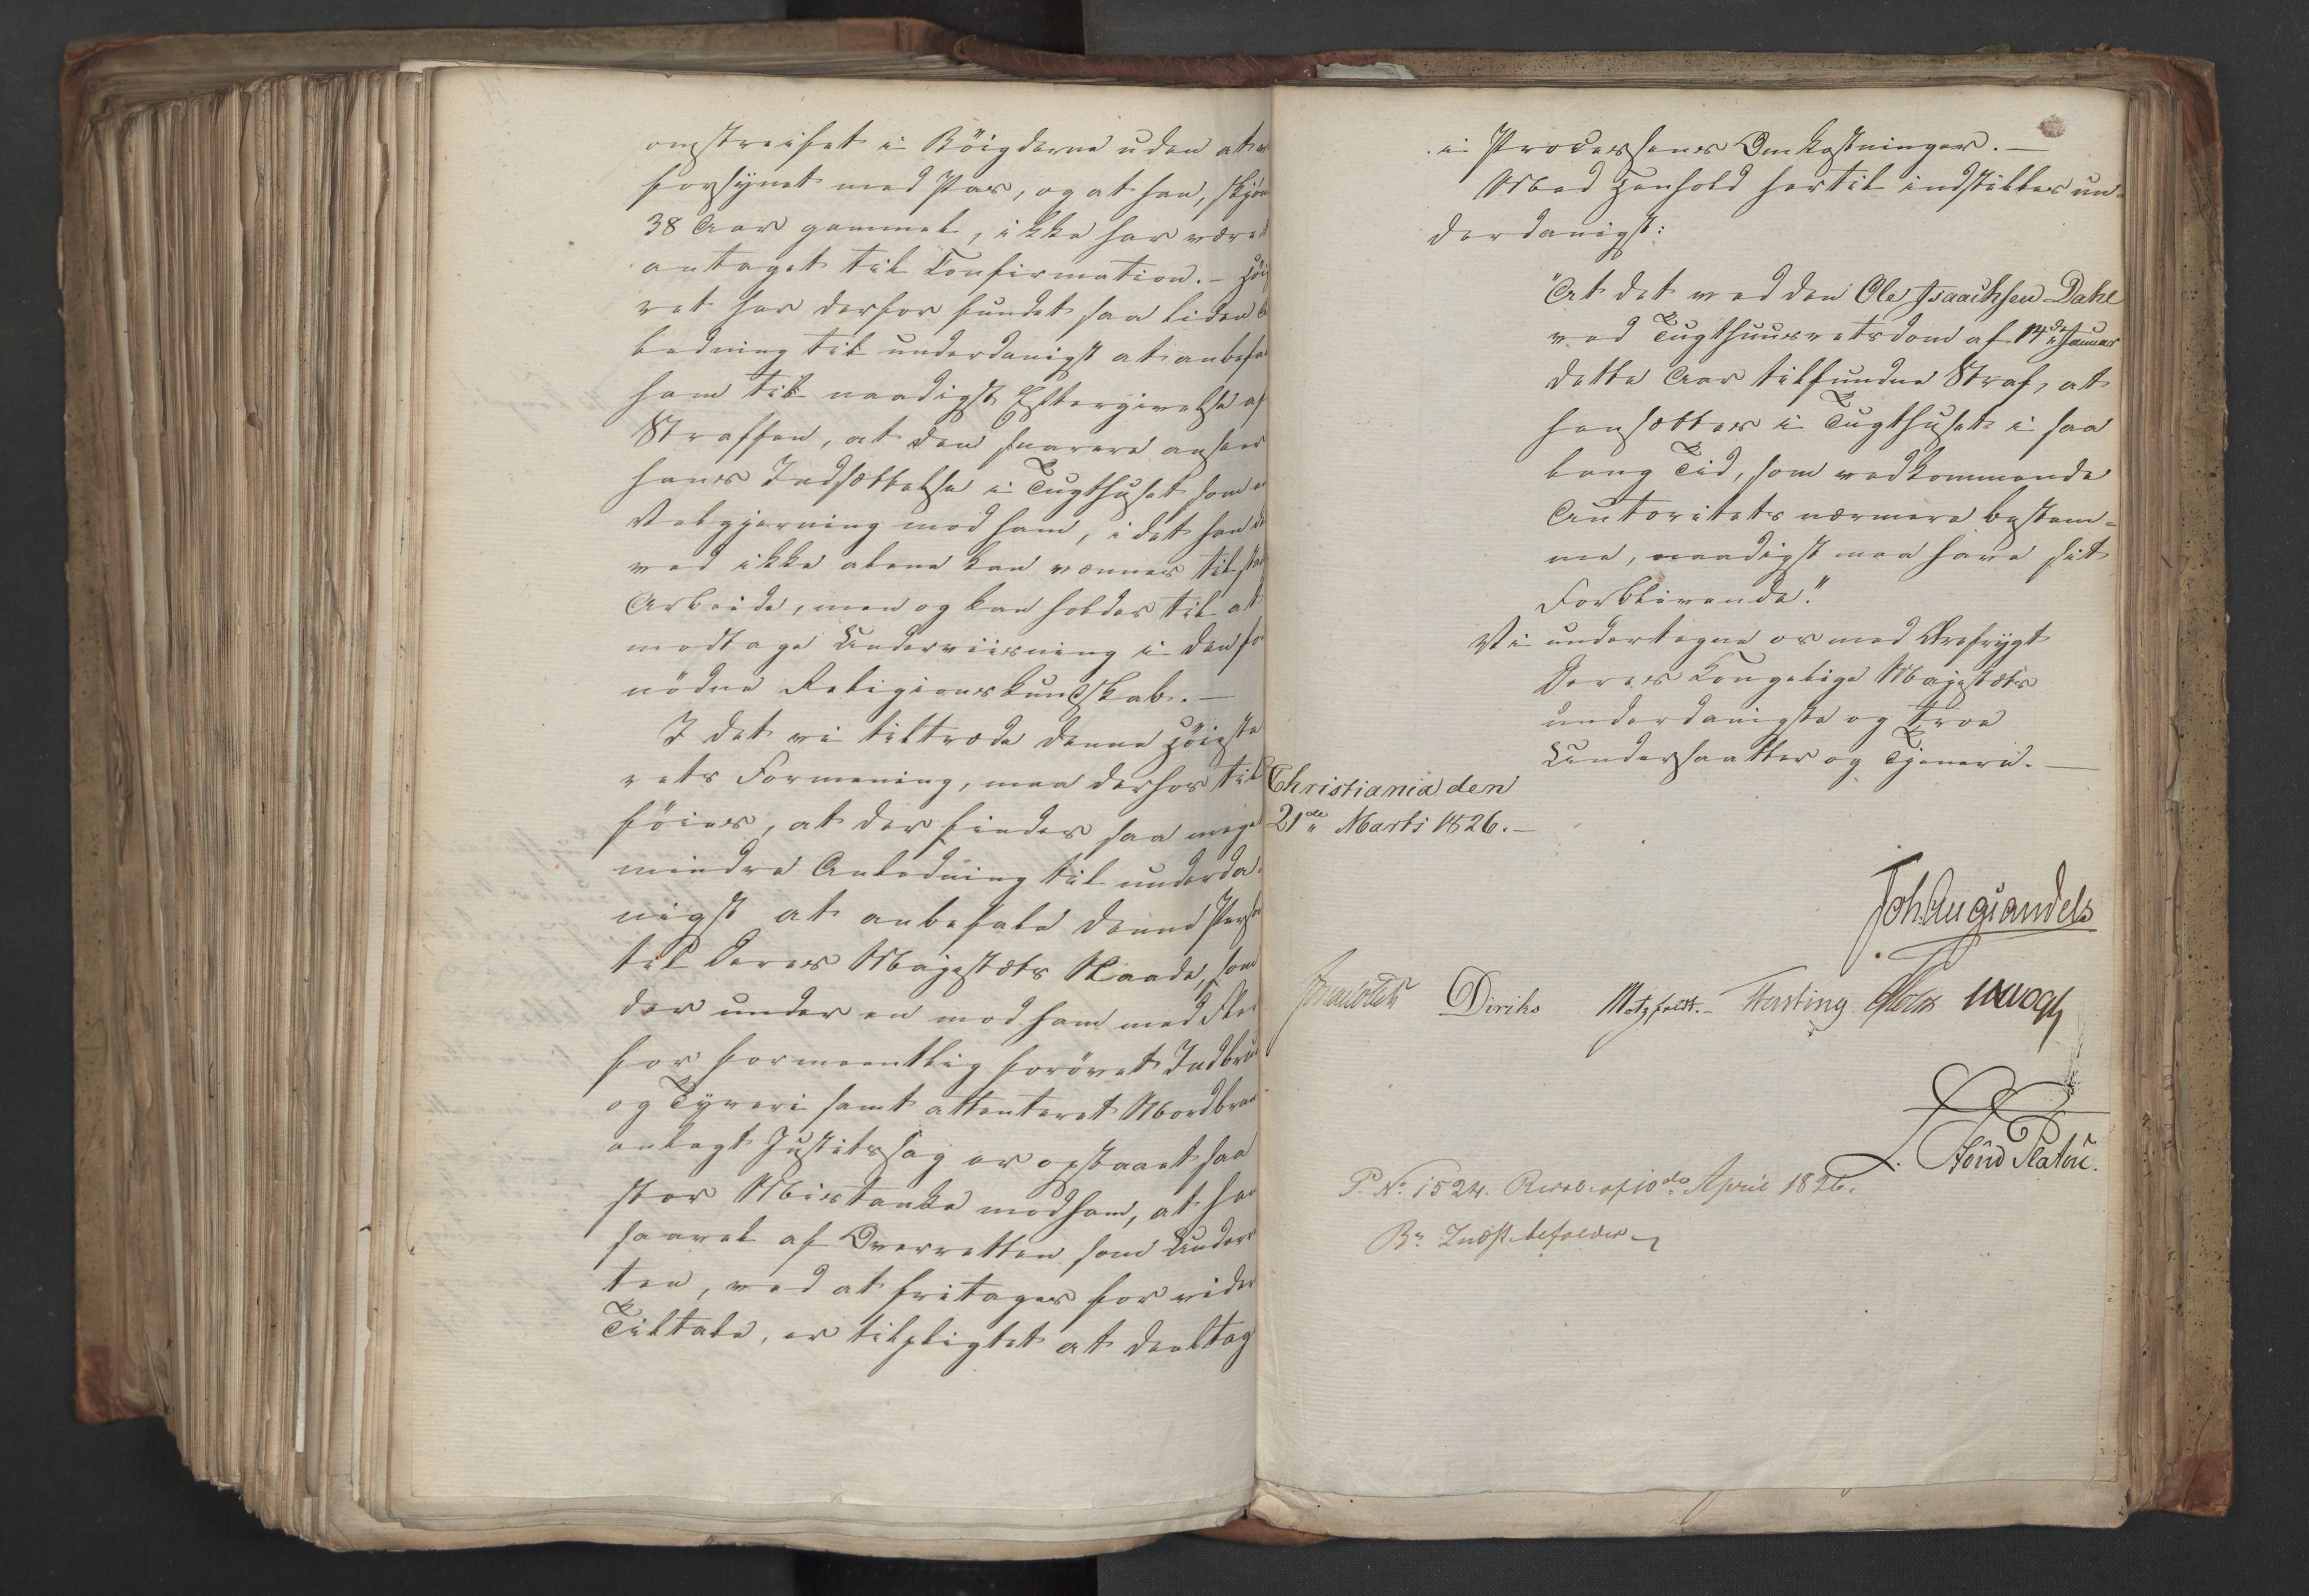 omstreifet i Böigderne uden at
forsÿnet med Pas, og at han, skjön
38 Aar gammel, ikke har været
antaget til Confirmation. – Höie
ret har derfor fundet saa liden
ledning til underdanigst at anbefa
ham til naadigst Eftergivelse af
Straffen, at den snarere anseer
hans Indsættelse i Tugthuset som
Velgjerning mod ham, i det han
ved ikke alene kan vænnes til
Arbeide, men og kan holdes til at
modtage Underviisning i den for
nödne Religionskundskab. –
I det vi tiltræde denne Höieste
rets Formening, maa derhos til
föies, at der findes saa meget
mindre Anledning til underda
nigst at anbefale denne Person
til Deres Majestæts Naade, som
der under en mod ham med Fler
for formeentlig forövet Indbrud
og Tÿveri samt attenteret Mordbrand
anlagt Justitssag er opstaaet saa
stor Mistanke mod ham, at han
saavel af Overretten som Under
ten, ved at fritages for videre
Tiltale, er tilpligtet at deeltag
i Processens Omkostninger. –
Med Henhold hertil indstilles un-
derdanigst:
"At det ved den Ole Isaachsen Dahl
ved Tugthuusretsdom af 14de Januar
dette Aar tilfundne Straf, at
hensættes i Tugthuset i saa
lang Tid, som vedkommende
Autoritets nærmere bestem-
me, naadigst maa have sit
Forblivende."
Vi undertegne os med Ærefrygt
Deres Kongelige Majestæts
underdanigste og troe
Undersaatter og Tjenere. –
Christiania den
21de Marts 1826. –
Joh. Aug. Sandels
Diriks Motzfeldt. Fasting
P. No. 1524. Resol. af 10de April 1826.
Indst. bifaldes